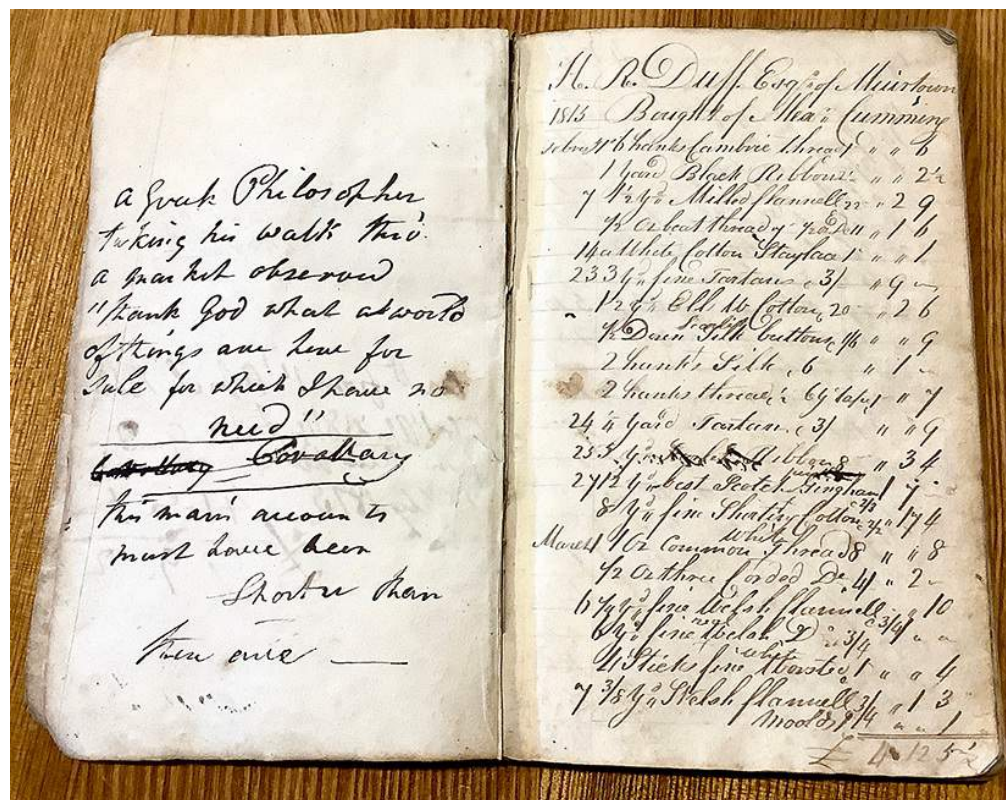 a Greek Philosopher
taking his walk thro'
a market observed
"thank God what a world
of things are here for
sale for which I have no
need"
Corollary
this man's accounts
must have been
shorter than
these are —
H. R. Duff Esqr. of Muirtown
1813 Bought of Alexr. Cumming
6 hanks Cambric thread 1 " " 6
1 yard Black Ribbon " " 2½
7 1½ yds Milled flannell 22 " 2 9
½ Oz best thread " 1 6
14 a White Cotton Staylace 1 " " 1
23 3 yds fine Tartan 3/ " 9 "
1½ yds Ell W Cotton 20 " 2 6
½ Dozen Scarlet Silk buttons 1/6 " " 9
2 hanks Silk 6 " 1 "
2 hanks thread " " 7
24 ¼ yard Tartan 3/ " " 9
25 5 yds Ribbon 8 " 3 4
27 12 yds best Scotch Gingham 1 7 "
8 yds fine Shirting Cotton 2/2 " 17 4
March 1 1 Oz Common White Thread 8 " " 8
½ Oz three Corded Do 4/ " 2 "
6 yds fine Welsh flannell 3/4 " 10
6 yds fine real Welsh Do 3/4 1 " "
4 Sticks fine white Worsted 1 " " 4
7 3/8 yd Welsh flannell 3/4 " 1 3
Moolds " " 1
£ 4 12 5½